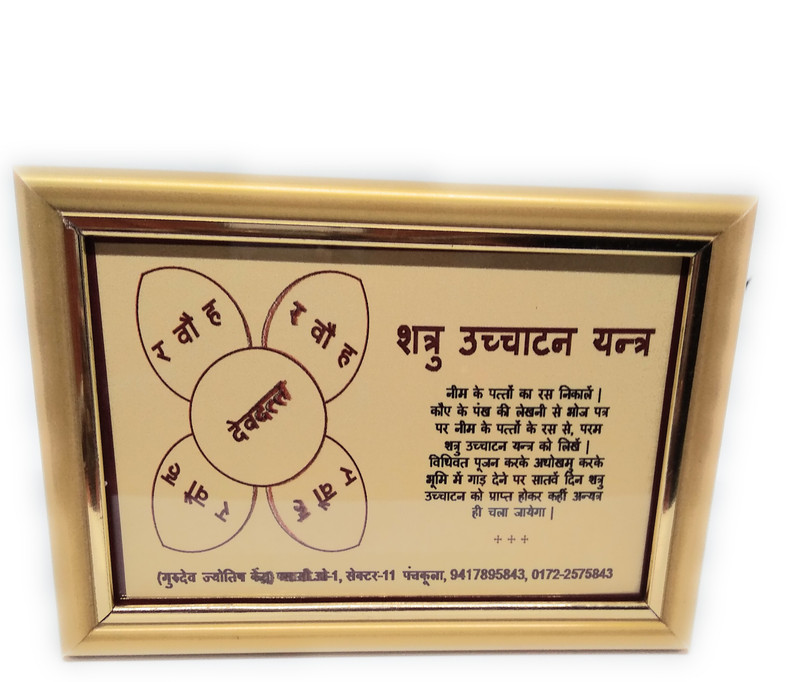 र वौ ह
र वौ ह
देवदत्त
र वौ ह
र वौ ह
शत्रु उच्चाटन यन्त्र
नीम के पत्तों का रस निकालें |
कौए के पंख की लेखनी से भोज पत्र
पर नीम के पत्तों के रस से, परम
शत्रु उच्चाटन यन्त्र को लिखें |
विधिवत पूजन करके अधोखमु करके
भूमि में गाड़ देने पर सातवें दिन शत्रु
उच्चाटन को प्राप्त होकर कहीं अन्यत्र
ही चला जायेगा |
+ + +
(गुरुदेव ज्योतिष केंद्र) सेक्टर-11 पंचकूला, 9417895843, 0172-2575843